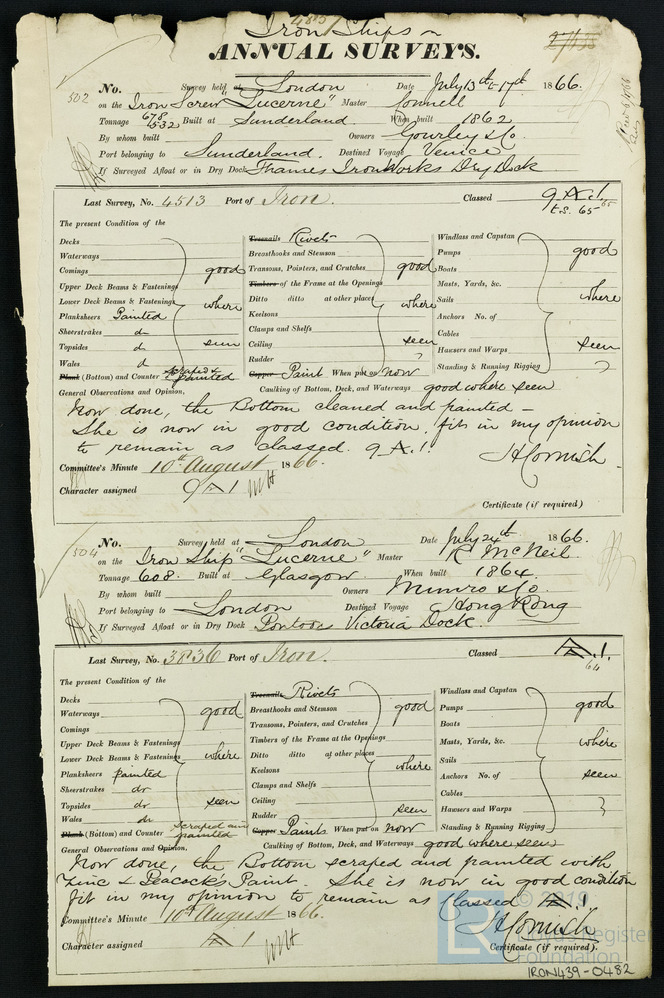 Iron Ships
ANNUAL SURVEYS.
502
No. Survey held at London Date July 13th & 17th 1866.
on the Iron Screw "Lucerne" Master Connell
Tonnage 678 532 Built at Sunderland When built 1862
By whom built Owners Gourley & Co.
Port belonging to Sunderland. Destined Voyage Venice
If Surveyed Afloat or in Dry Dock Thames Iron Works Dry Dock
Last Survey, No. 4513 Port of Iron. Classed 9 A.1. 65
t.S. 65
The present Condition of the
Decks
Waterways
Comings
Upper Deck Beams & Fastenings
Lower Deck Beams & Fastenings
Planksheers Painted
Sheerstrakes do
Topsides do
Wales do
good where seen
Plank (Bottom) and Counter scraped & painted
Treenails Rivets
Breasthooks and Stemson
Transons, Pointers, and Crutches
Timbers of the Frame at the Openings
Ditto ditto at other places
Keelsons
Clamps and Shelfs
Ceiling
Rudder
good where seen
Copper Paint When put on now
Windlass and Capstan
Pumps
Boats
Masts, Yards, &c.
Sails
Anchors No. of
Cables
Hawsers and Warps
Standing & Running Rigging
good where seen
Caulking of Bottom, Deck, and Waterways good where seen
General Observations and Opinion,
Now done, the Bottom cleaned and painted –
She is now in good condition, fit in my opinion
to remain as classed. 9 A.1.
J H Cornish
Committee's Minute 10th August 1866.
Character assigned 9 A 1
Certificate (if required)
504
No. Survey held at London Date July 24th 1866.
on the Iron Ship "Lucerne" Master R McNeil
Tonnage 608. Built at Glasgow When built 1864.
By whom built Owners Munro & Co.
Port belonging to London Destined Voyage Hong Kong
If Surveyed Afloat or in Dry Dock Pontoon Victoria Dock.
Last Survey, No. 3836 Port of Iron. Classed A.1.
64
The present Condition of the
Decks
Waterways
Comings
Upper Deck Beams & Fastenings
Lower Deck Beams & Fastenings
Planksheers painted
Sheerstrakes do
Topsides do
Wales do
good where seen
Plank (Bottom) and Counter scraped and painted
Treenails Rivets
Breasthooks and Stemson
Transons, Pointers, and Crutches
Timbers of the Frame at the Openings
Ditto ditto at other places
Keelsons
Clamps and Shelfs
Ceiling
Rudder
good where seen
Copper Paints When put on now
Windlass and Capstan
Pumps
Boats
Masts, Yards, &c.
Sails
Anchors No. of
Cables
Hawsers and Warps
Standing & Running Rigging
good where seen
Caulking of Bottom, Deck, and Waterways good where seen
General Observations and Opinion.
Now done, the Bottom scraped and painted with
Zinc & Peacock's Paint. She is now in good condition
fit in my opinion to remain as Classed A.1.
J H Cornish
Committee's Minute 10th August 1866.
Character assigned A 1
Certificate (if required).
© 2019
Lloyd's Register
Foundation
IRON439-0482